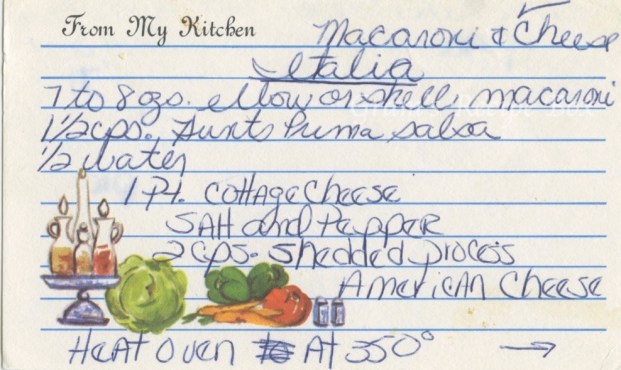 From My Kitchen
Macaroni & Cheese
Italia
7 to 8 ozs. ellow or shell macaroni
1 1/2 cps. Hunts Prima Salsa
1/2 water
1 Pt. cottage cheese
SAlt and Pepper
2 cps. Shedded process
AmericAn Cheese
HeAt oven At 350° →